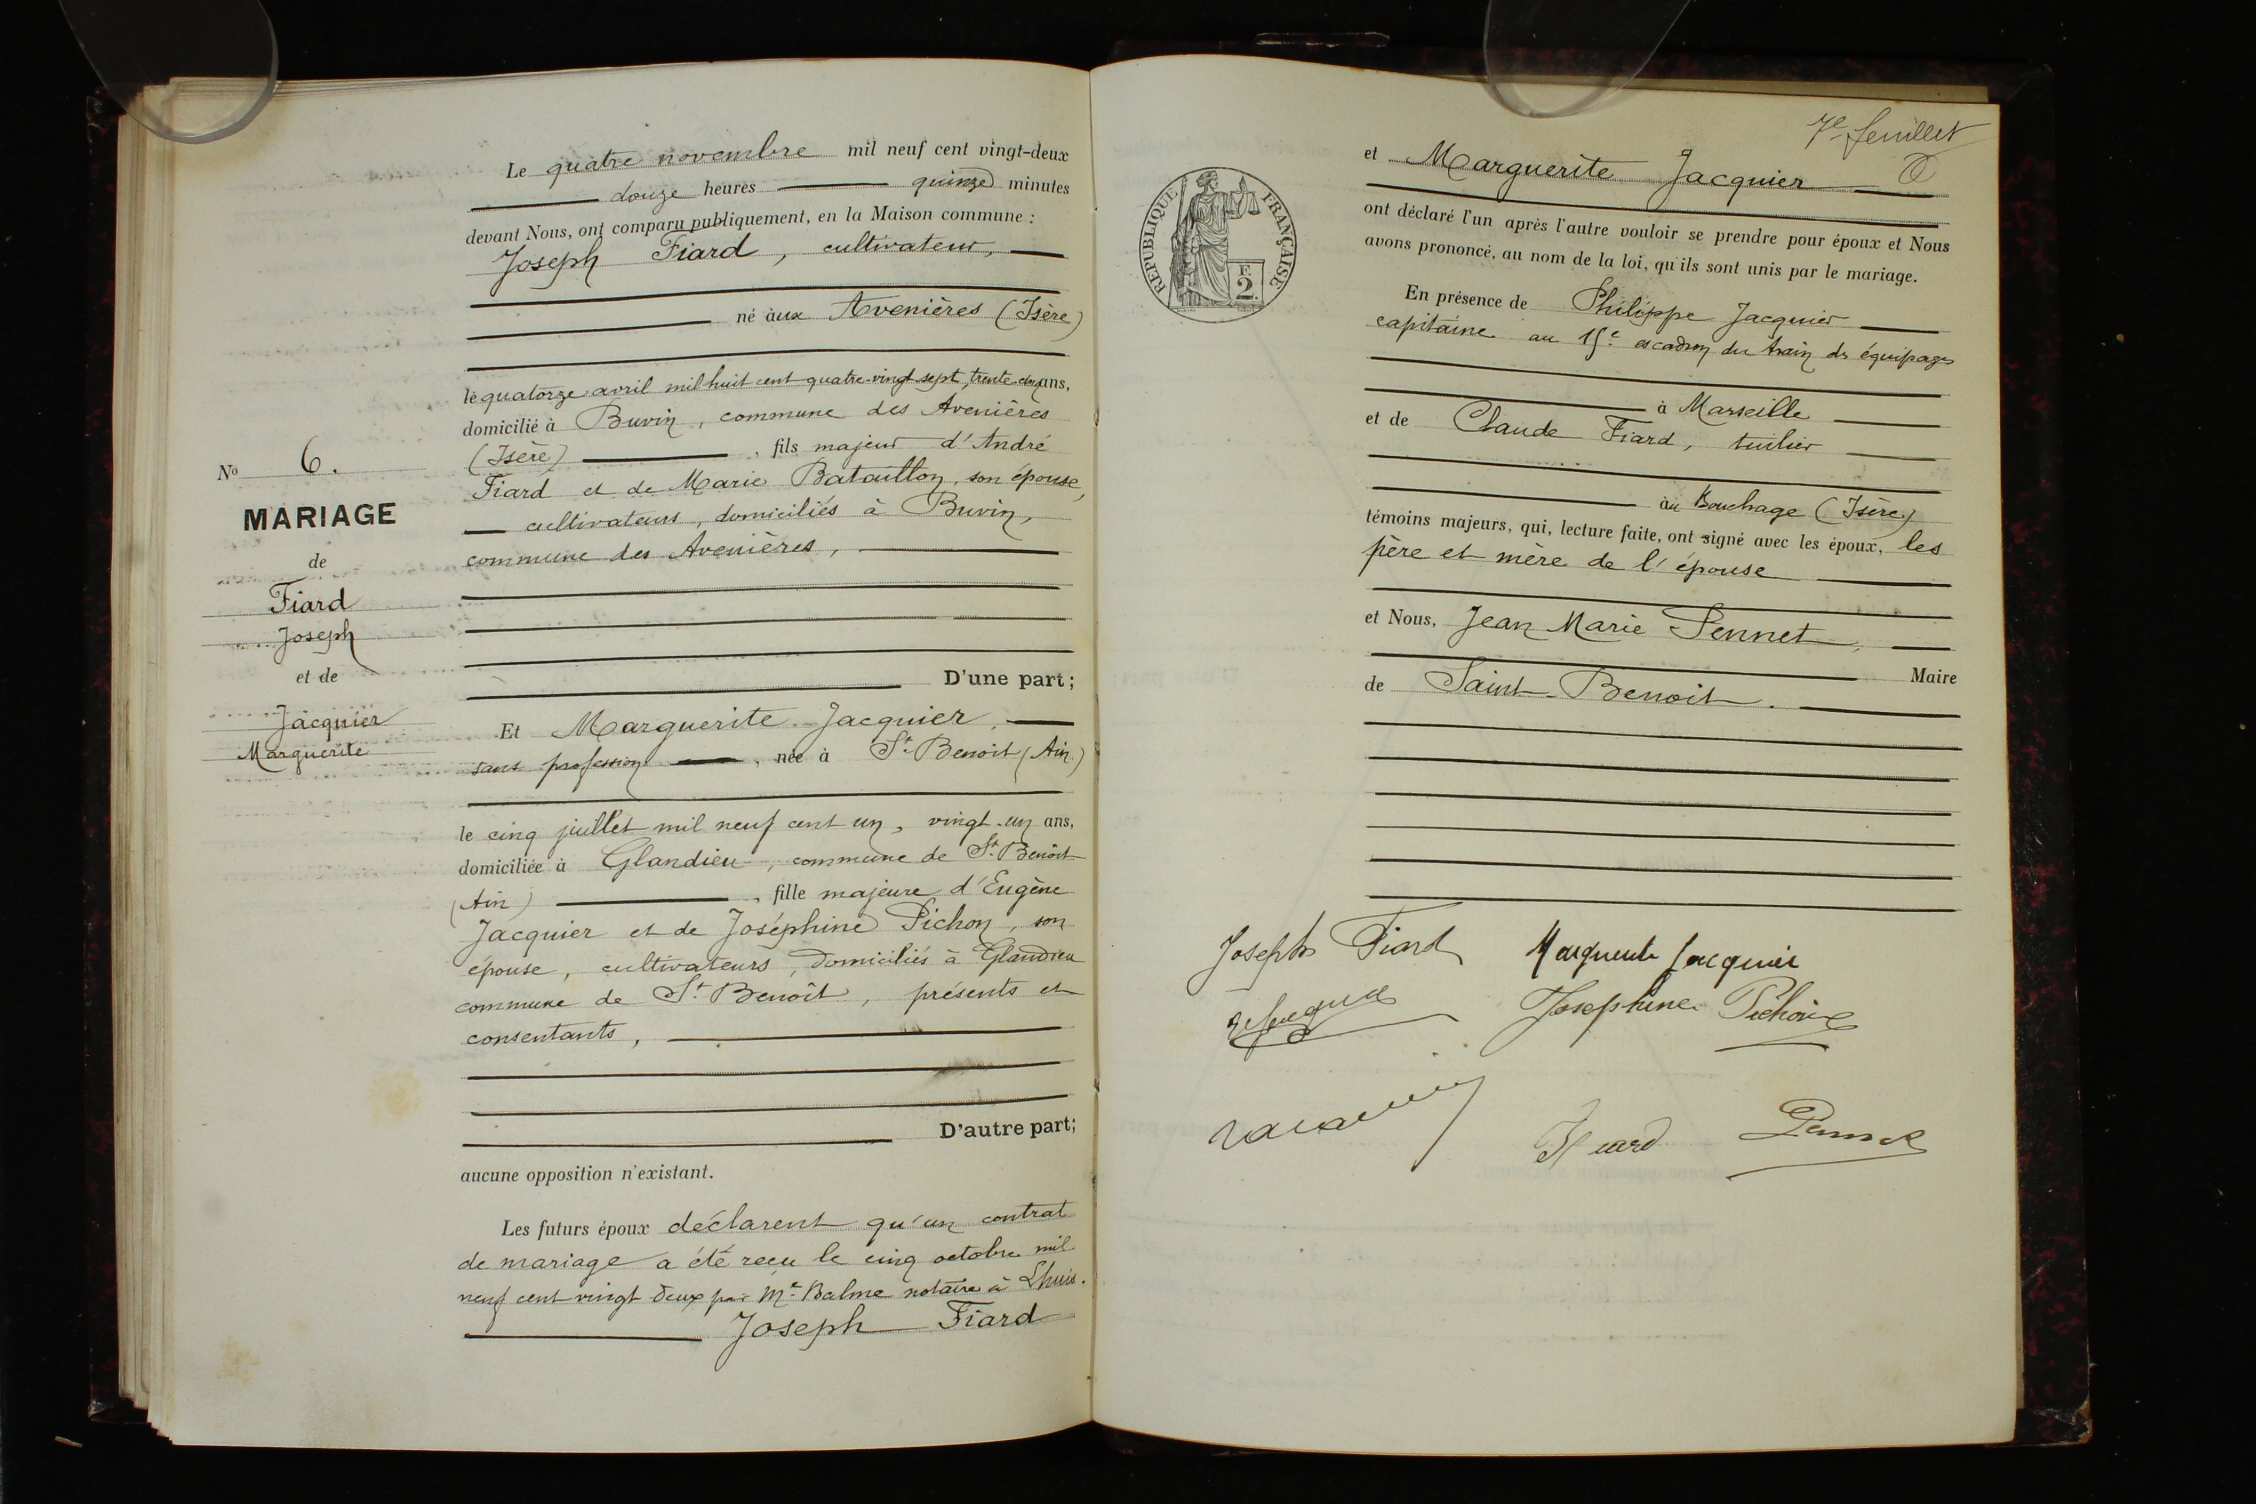 Le quatre novembre mil neuf cent vingt-deux
douze heures quinze minutes
devant Nous, ont comparu publiquement, en la Maison commune :
Joseph Fiard, cultivateur,
né aux Avenières (Isère)
le quatorze avril mil huit cent quatre-vingt sept, trente cinq ans,
domicilié à Buvin, commune des Avenières
(Isère), fils majeur d'André
Fiard et de Marie Bataillon, son épouse,
cultivateurs, domiciliés à Buvin,
commune des Avenières,
D'une part;
No 6.
MARIAGE
de
Fiard
Joseph
et de
Jacquier
Marguerite
Et Marguerite Jacquier,
sans profession, née à St. Benoit (Ain)
le cinq juillet mil neuf cent un, vingt-un ans,
domiciliée à Glandieu, commune de St. Benoît
(Ain), fille majeure d'Eugène
Jacquier et de Joséphine Pichon, son
épouse, cultivateurs, domiciliés à Glandieu
commune de St. Benoît, présents et
consentants,
D'autre part;
aucune opposition n'existant.
Les futurs époux déclarent qu'un contrat
de mariage a été reçu le cinq octobre mil
neuf cent vingt deux par Me Balme notaire à Lhuis.
Joseph Fiard
7e feuillet
RÉPUBLIQUE FRANÇAISE
F.
2.
et Marguerite Jacquier
ont déclaré l'un après l'autre vouloir se prendre pour époux et Nous
avons prononcé, au nom de la loi, qu'ils sont unis par le mariage.
En présence de Philippe Jacquier
capitaine au 15e escadron du train des équipages
à Marseille
et de Claude Fiard, tuilier
au Bouchage (Isère)
témoins majeurs, qui, lecture faite, ont signé avec les époux, les
père et mère de l'épouse
et Nous, Jean Marie Pennet,
Maire
de Saint-Benoit.
Joseph Fiard Marguerite Jacquier
Josephine Pichon
Fiard Pennet